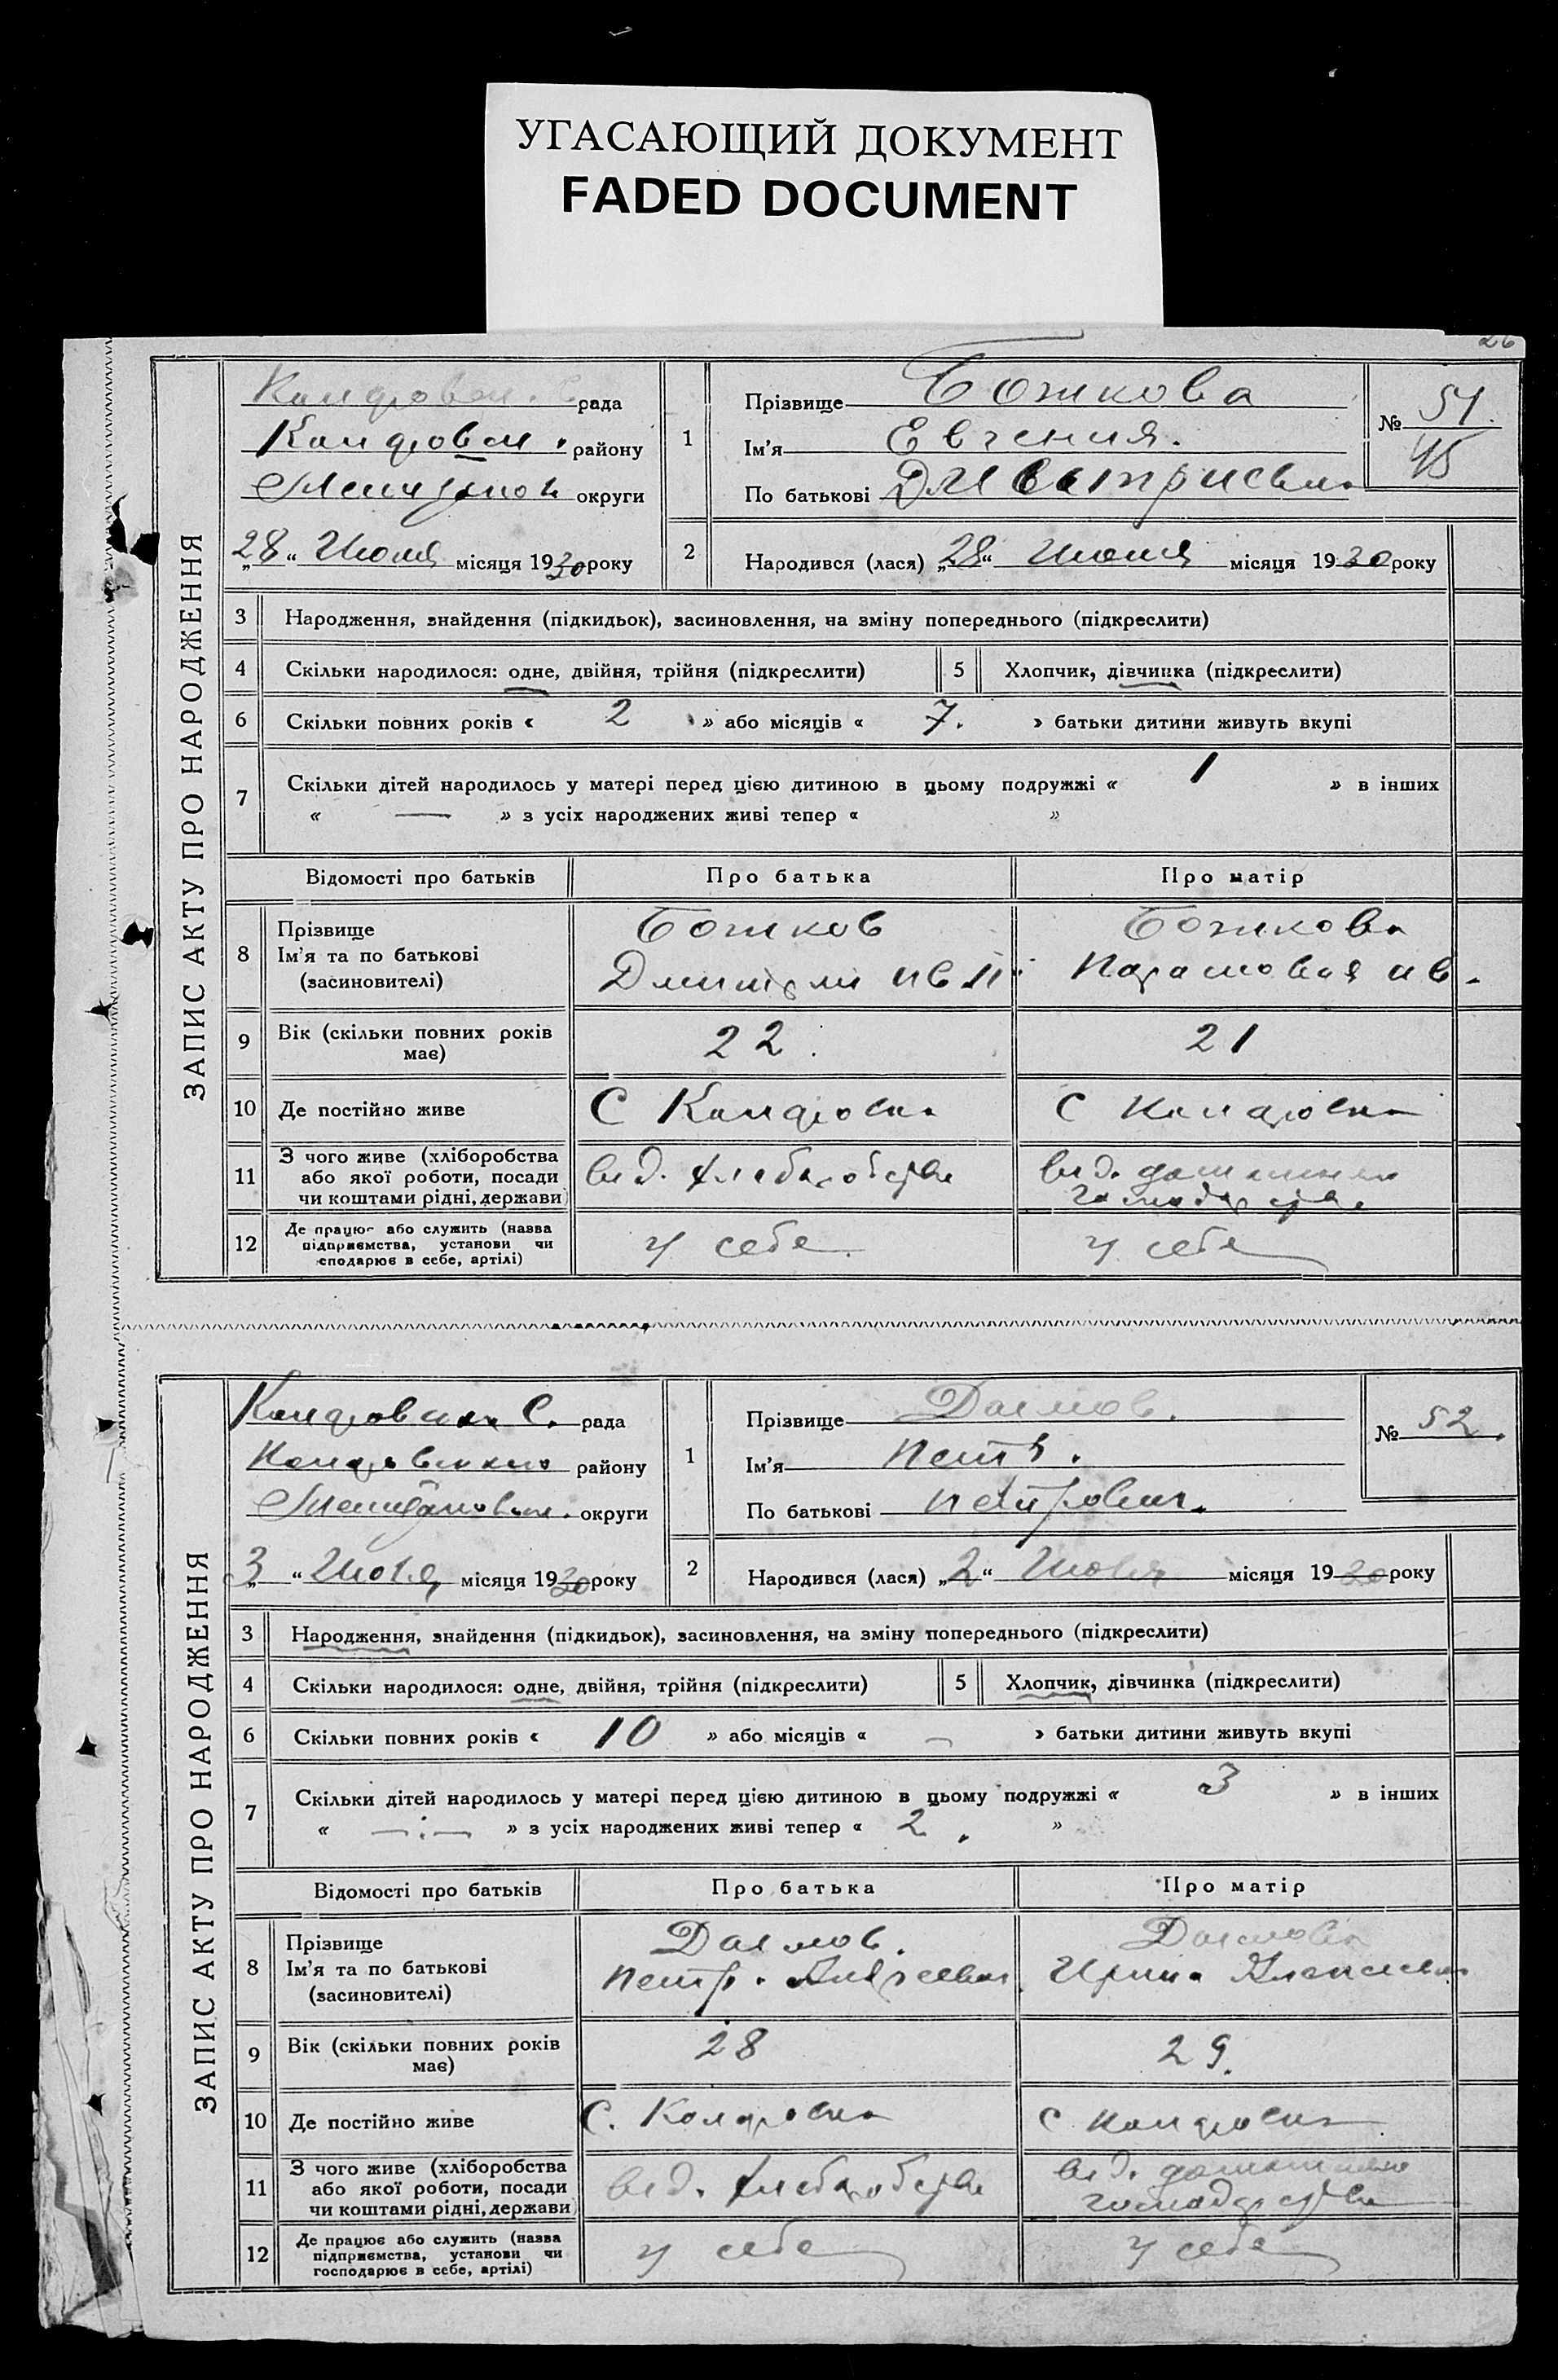 УГАСАЮЩИЙ ДОКУМЕНТ
FADED DOCUMENT
26
ЗАПИС АКТУ ПРО НАРОДЖЕННЯ
рада
району
округи
„28“ Июня місяця 1930 року
1
Прізвище Божкова
Ім'я Евгения.
По батькові
№ 51.
45
2
Народився (лася) „28“ Июня місяця 1930 року
3 Народження, знайдення (підкидьок), засиновлення, на зміну попереднього (підкреслити)
4 Скільки народилося: одне, двійня, трійня (підкреслити)
5 Хлопчик, дівчинка (підкреслити)
6 Скільки повних років « 2 » або місяців « 7. » батьки дитини живуть вкупі
7 Скільки дітей народилось у матері перед цією дитиною в цьому подружжі « 1 » в інших
« — » з усіх народжених живі тепер « »
Відомості про батьків Про батька Про матір
8 Прізвище Божков Божкова
Ім'я та по батькові Дмитрий Ив
(засновителі)
9 Вік (скільки повних років 22. 21
має)
10 Де постійно живе С С
11 З чого живе (хліборобства від. хлеборобства від. домашнього
або якої роботи, посади господарства
чи коштами рідні, держави)
12 Де працює або служить (назва у себе у себе
підприємства, установи чи
сподарює в себе, артілі)
ЗАПИС АКТУ ПРО НАРОДЖЕННЯ
С. рада
району
округи
„3“ Июля місяця 1930 року
1
Прізвище
Ім'я Петр.
По батькові Петрович.
№ 52.
2
Народився (лася) „2“ Июля місяця 1930 року
3 Народження, знайдення (підкидьок), засиновлення, на зміну попереднього (підкреслити)
4 Скільки народилося: одне, двійня, трійня (підкреслити)
5 Хлопчик, дівчинка (підкреслити)
6 Скільки повних років « 10 » або місяців « — » батьки дитини живуть вкупі
7 Скільки дітей народилось у матері перед цією дитиною в цьому подружжі « 3 » в інших
« —.— » з усіх народжених живі тепер « 2. »
Відомості про батьків Про батька Про матір
8 Прізвище
Ім'я та по батькові Петр. Ирина
(засиновителі)
9 Вік (скільки повних років 28 29.
має)
10 Де постійно живе С. С
11 З чого живе (хліборобства від. хлеборобства від. домашнього
або якої роботи, посади господарства
чи коштами рідні, держави)
12 Де працює або служить (назва у себе у себе
підприємства, установи чи
господарює в себе, артілі)